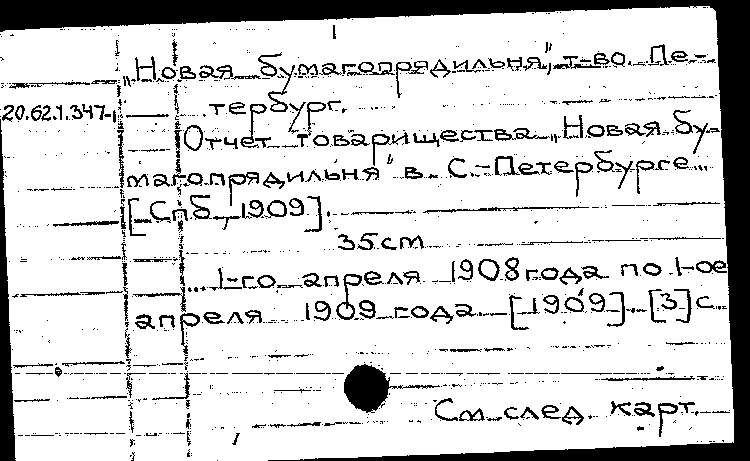 „Новая бумагопрядильня", т-во. Пе-
20.62.1.347-1 тербург.
Отчет товарищества „Новая бу-
магопрядильня" в С.-Петербурге...
[Спб., 1909].
35 cm
... 1-го апреля 1908 года по 1-ое
апреля 1909 года. [1909]. [3] с.
См след. карт.